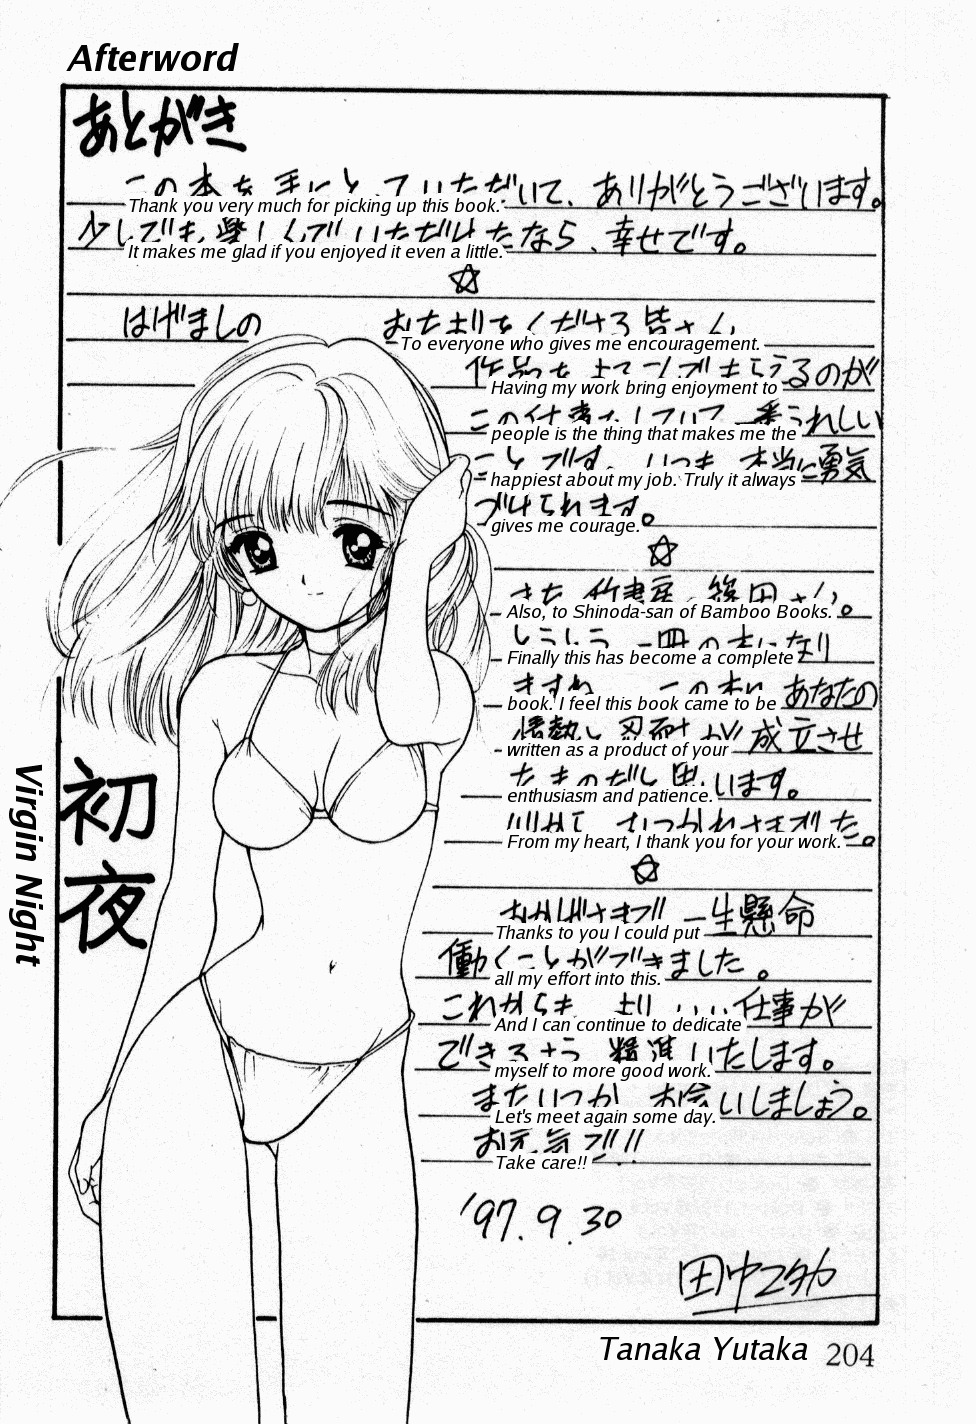 Afterword
あとがき
この本を手にとっていただいて、ありがとうございます。
Thank you very much for picking up this book.
少しでも楽しんでいただけたなら、幸せです。
It makes me glad if you enjoyed it even a little.
☆
はげましの お たより を くださる 皆さん
To everyone who gives me encouragement.
作品を るのが
Having my work bring enjoyment to
この仕事をしていて一番うれしい
people is the thing that makes me the
ことです。いつも 本当に勇気
happiest about my job. Truly it always
づけられます。
gives me courage.
☆
Also, to Shinoda-san of Bamboo Books.
一冊の本になり
Finally this has become a complete
ますね この本は あなたの
book. I feel this book came to be
情熱と忍耐が成立させ
written as a product of your
たものだと思います。
enthusiasm and patience.
おつかれさまでした。
From my heart, I thank you for your work.
☆
おかげさまで 一生懸命
Thanks to you I could put
働くことができました。
all my effort into this.
これからも より いい仕事が
And I can continue to dedicate
できるよう 精進いたします。
myself to more good work.
またいつか お会いしましょう。
Let's meet again some day.
お元気で!!
Take care!!
'97.9.30
田中ユタカ
Tanaka Yutaka
204
初夜
Virgin Night